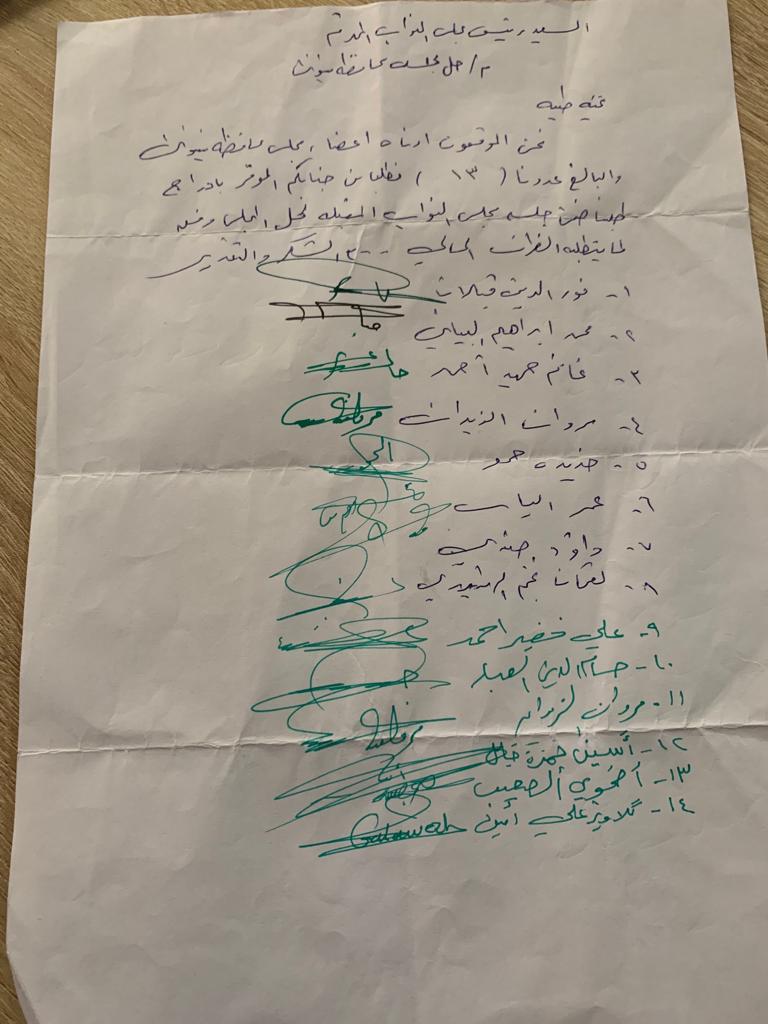 السيد رئيس مجلس النواب المحترم
م/ حل مجلس محافظة نينوى
تحية طيبة
نحن الموقعون ادناه اعضاء مجلس محافظة نينوى
والبالغ عددنا ( ١٣ ) نطلب من جنابكم الموقر بادراج
طلبنا ضمن جلسة مجلس النواب المقبلة لحل المجلس وفق
لما يتطلبه القرار الحالي --- مع الشكر والتقدير
١- نور الدين قبلان
٢- محمد ابراهيم البياتي
٣- غانم حميد احمد
٤- مروان الزيدان
٥- حمو
٦- عمر الياس
٧- داؤد جندي
٨- لقمان نجم الرشيدي
٩- علي خضير احمد
١٠- حسام الدين العبار
١١- مروان الزيدان
١٢- أسيل حمزة
١٣- أضحوي الصعيب
١٤- كلاويز علي أمين
Galawesh